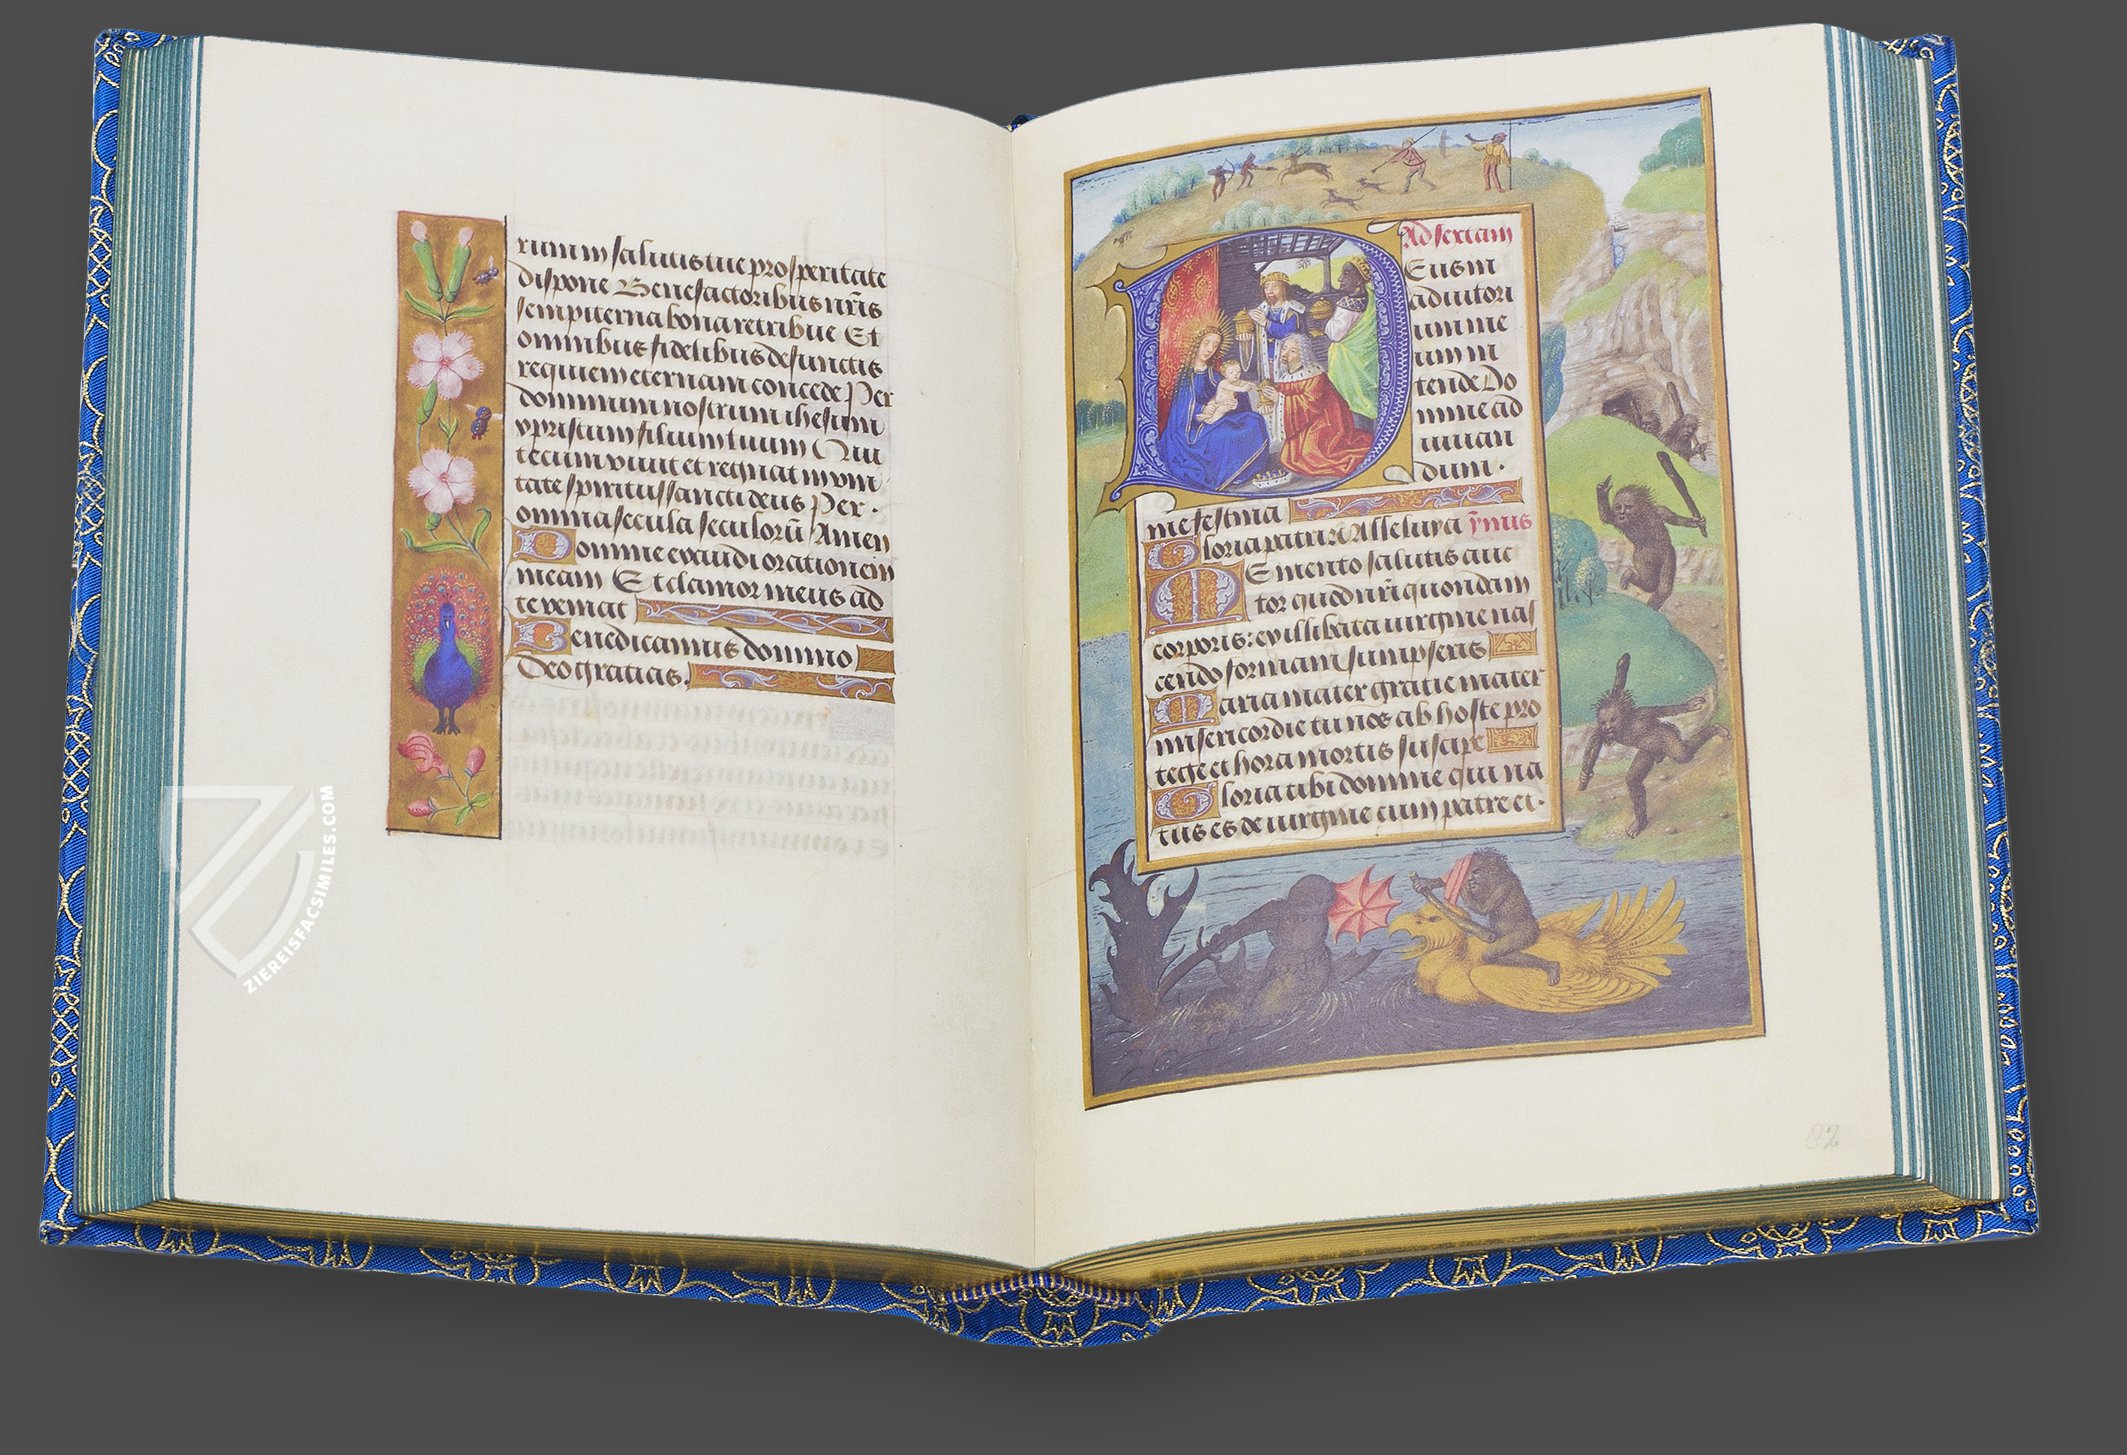 rium in salutis tue prosperitate
dispone Benefactoribus nr̄is
sempiterna bona retribue Et
omnibus fidelibus defunctis
requiem eternam concede Per
dominum nostrum ihesum
xpristum filium tuum Qui
tecum vivit et regnat in vni
tate spiritus sancti deus Per
omnia secula seculorū Amen
Domine exaudi orationem
meam Et clamor meus ad
te veniat
Benedicamus domino
Deo gratias.
Ad sextam
Deus in
adiutori
um me
um in
tende Do
mine ad
iuuan
dum.
me festina
Gloria patri Alleluya ym̄us
Memento salutis auc
tor quod nr̄i quondam
corporis: ex illibata uirgine nas
cendo formam sumpseris
Maria mater gratie mater
misericordie tu nos ab hoste pro
tege et hora mortis suscipe
Gloria tibi domine qui na
tus es de uirgine cum patre et.
82
ZIEREISFACSIMILES.COM